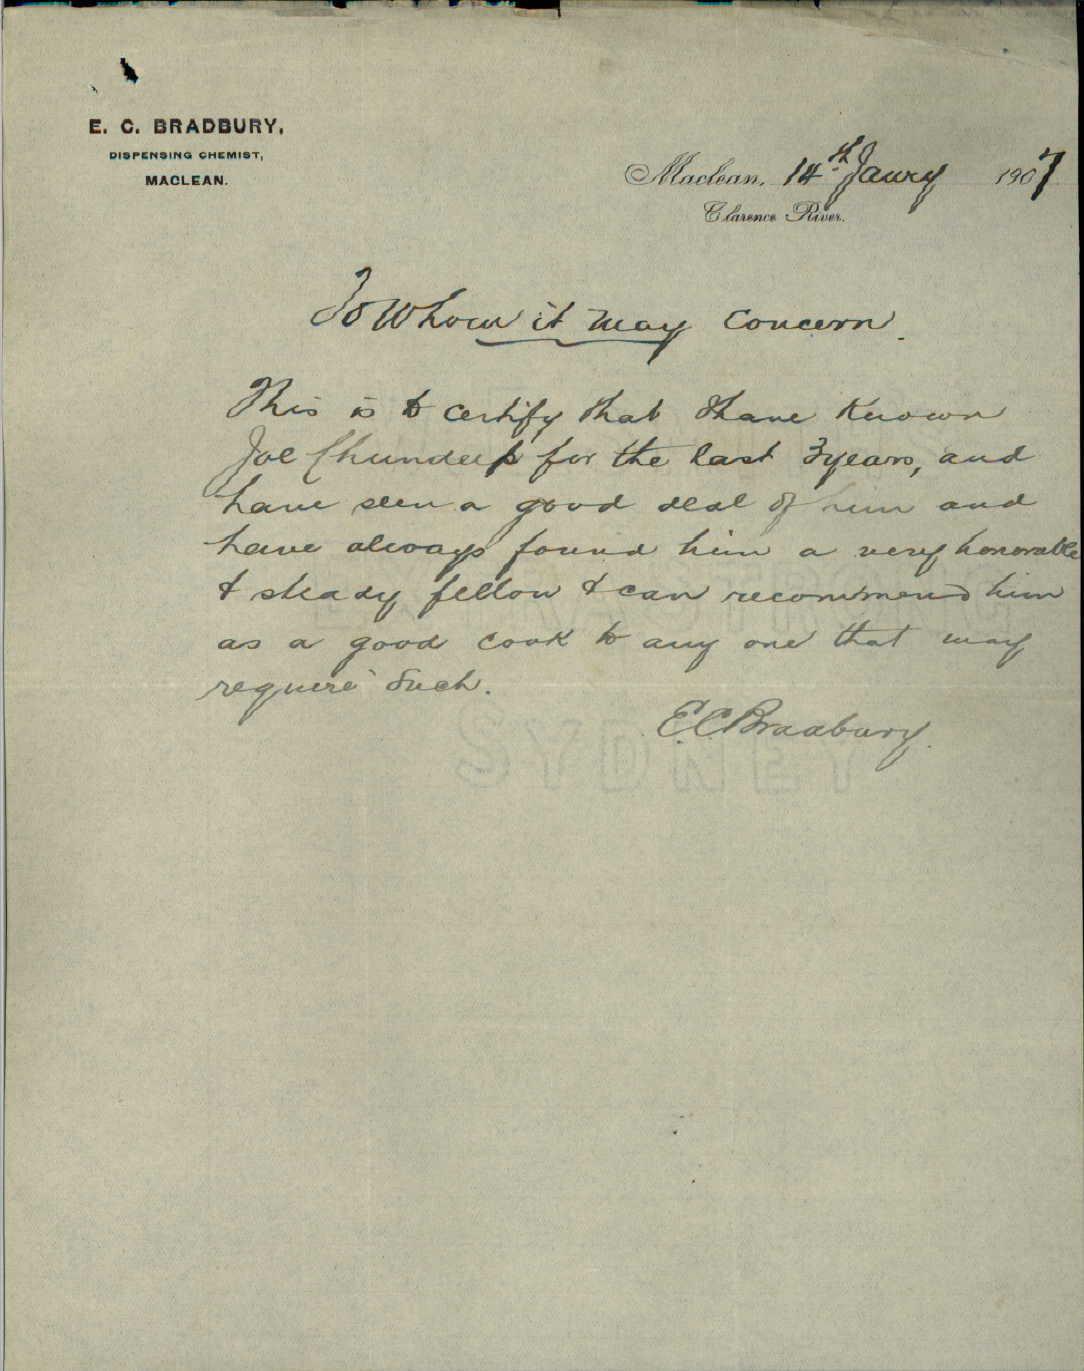 E. C. BRADBURY,
DISPENSING CHEMIST,
MACLEAN.
Maclean, 14th Jaury 1907
Clarence River.
To Whom it may Concern.
This is to certify that I have Known
Joe Chundeep for the last 3 years, and
have seen a good deal of him and
have always found him a very honorable
& steady fellow & can recommend him
as a good cook to any one that may
requere such.
E. C. Bradbury.
SYDNEY